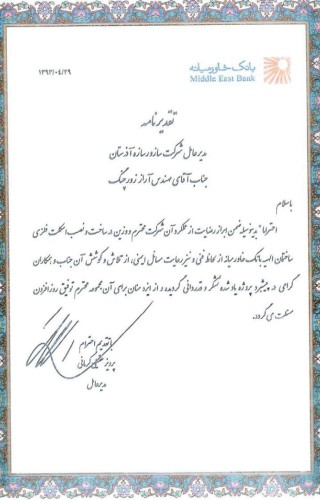 بانک خاورمیانه
Middle East Bank
۱۳۹۳/۰۴/۲۹
تقدیرنامه
مدیرعامل شرکت سازور سازه آذرستان
جناب آقای مهندس آراز زورچنگ
باسلام
احتراماً بدینوسیله ضمن ابراز رضایت از عملکرد آن شرکت محترم و وزین در ساخت و نصب اسکلت فلزی
ساختمان الهیه بانک خاورمیانه از لحاظ فنی و نیز رعایت مسائل ایمنی، از تلاش و کوشش آن جناب و همکاران
گرامی در پیشبرد پروژه یاد شده تشکر و قدردانی گردیده و از ایزد منان برای آن مجموعه محترم توفیق روزافزون
مسئلت می گردد.
با تقدیم احترام
پرویز عقیلی کرمانی
مدیرعامل